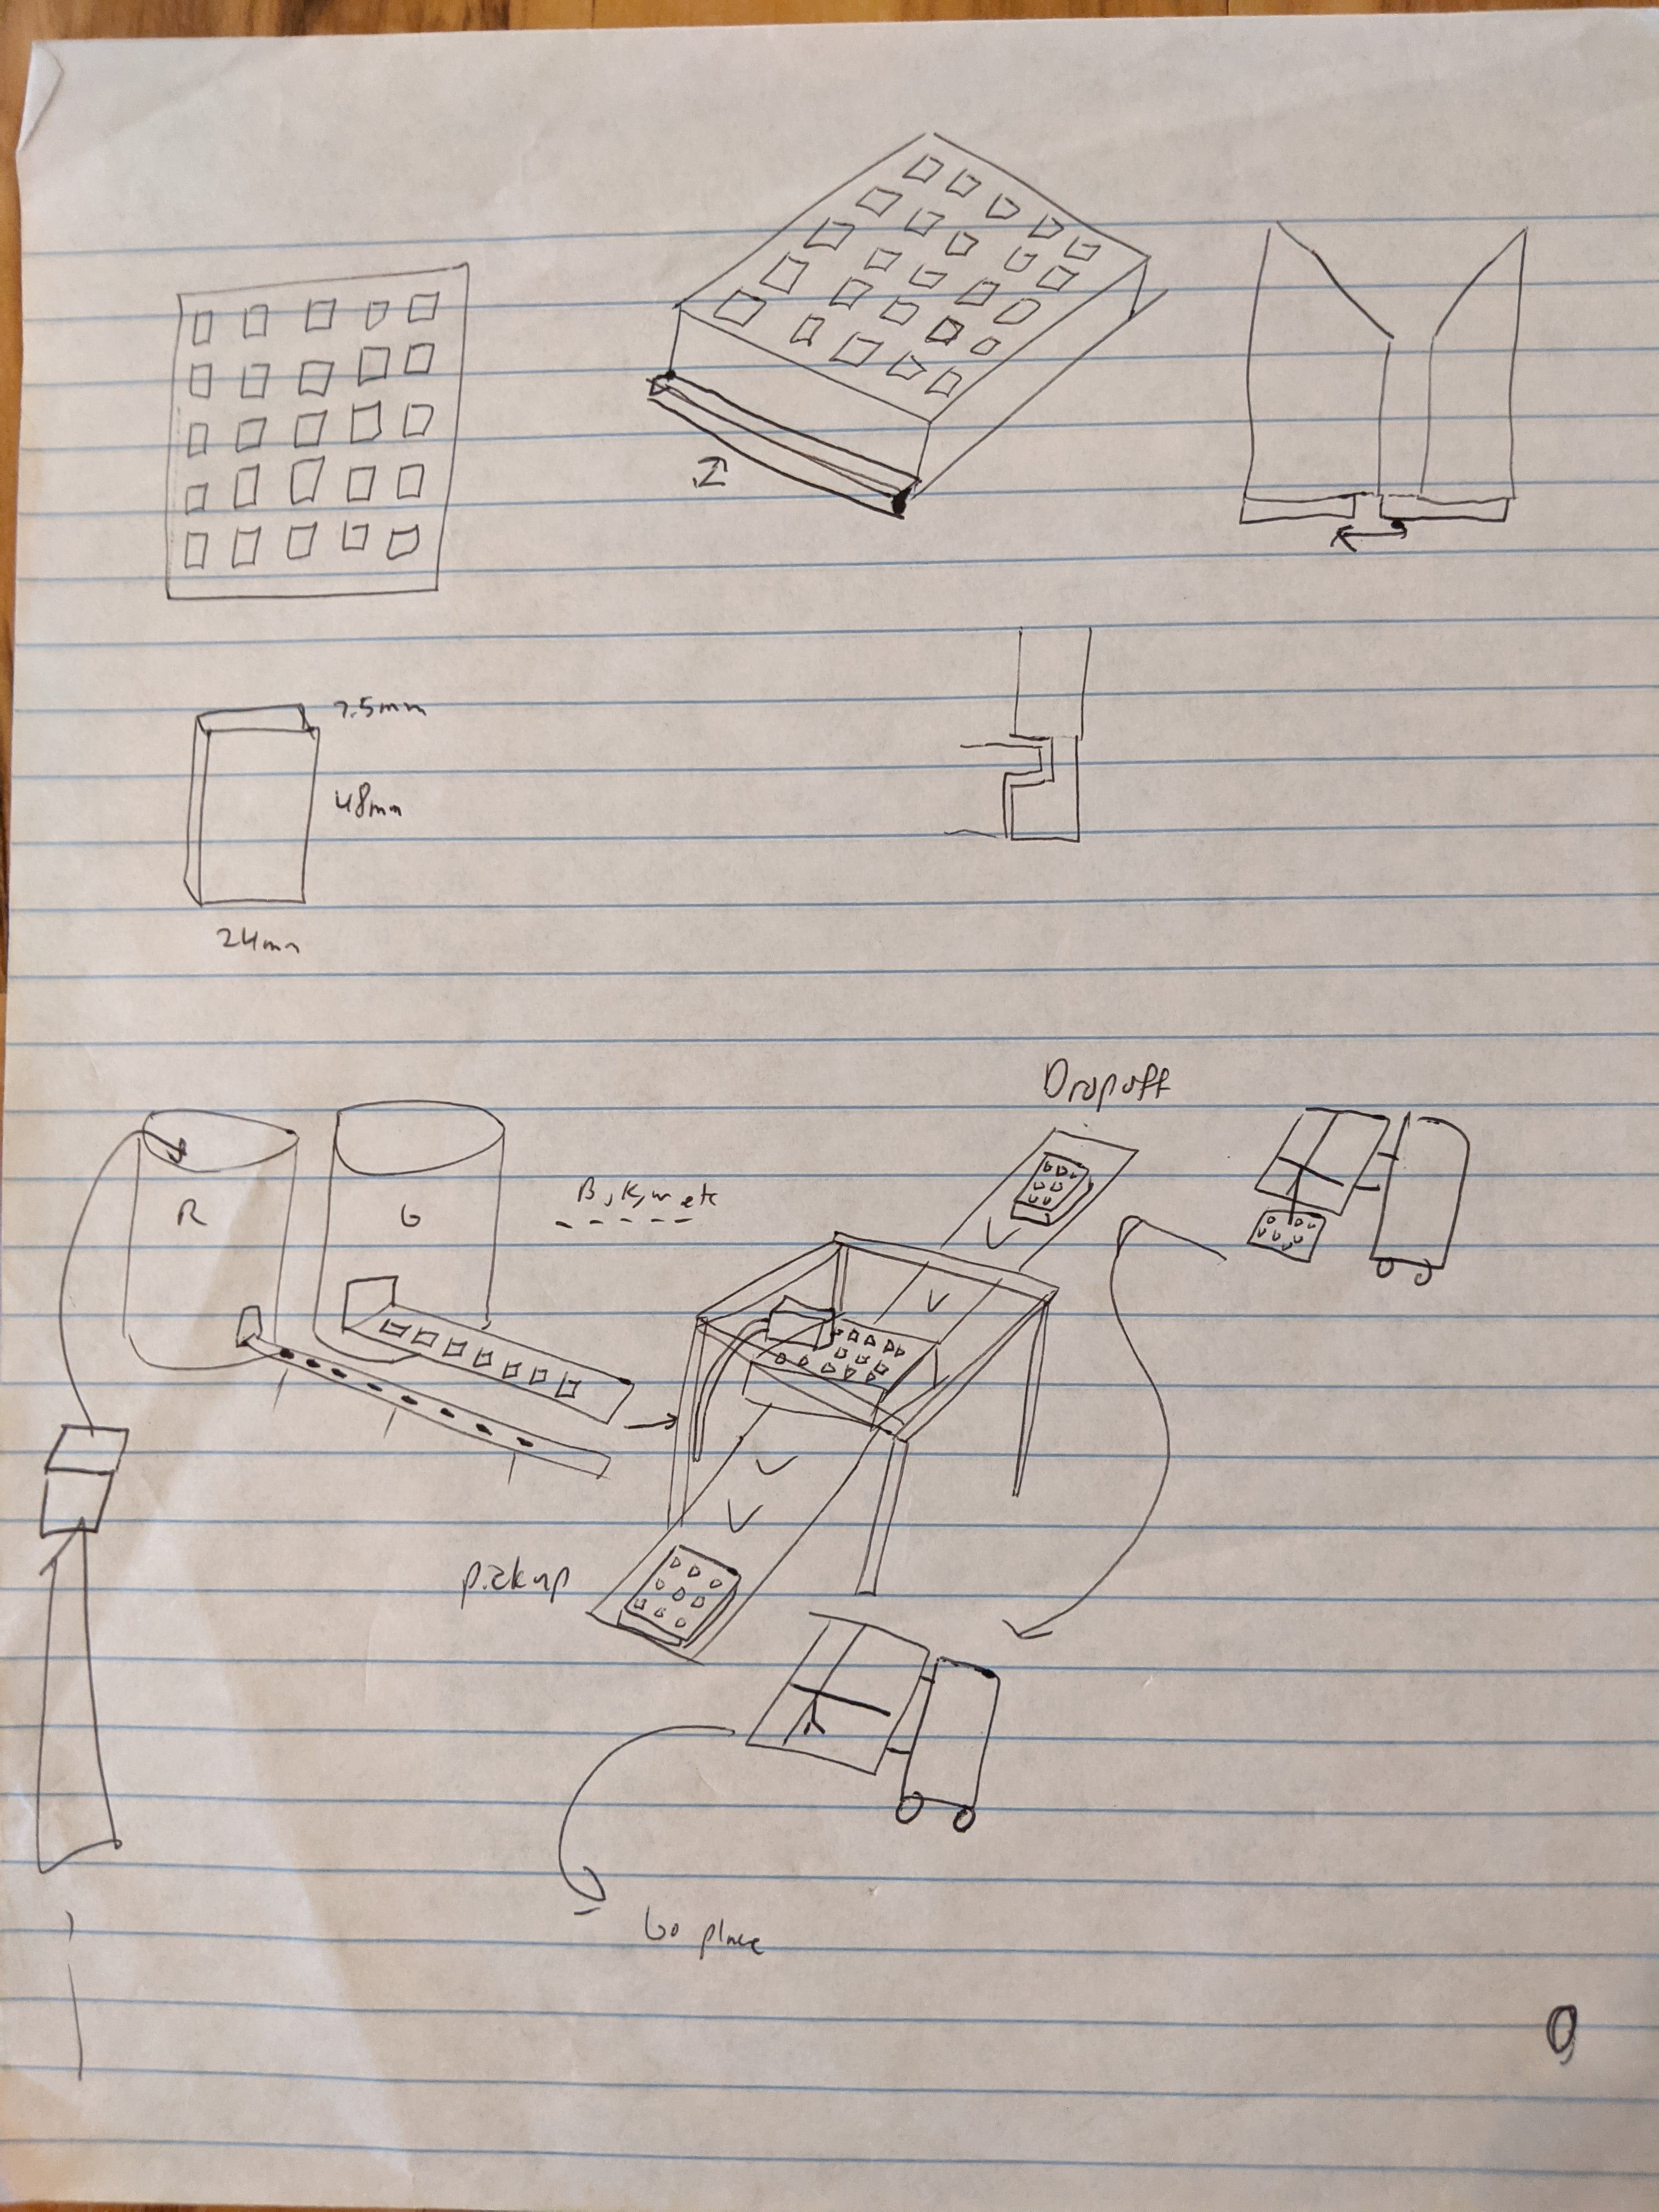 7.5mm
48mm
24mm
Dropoff
R
G
B, K, W etc
pickup
Go place